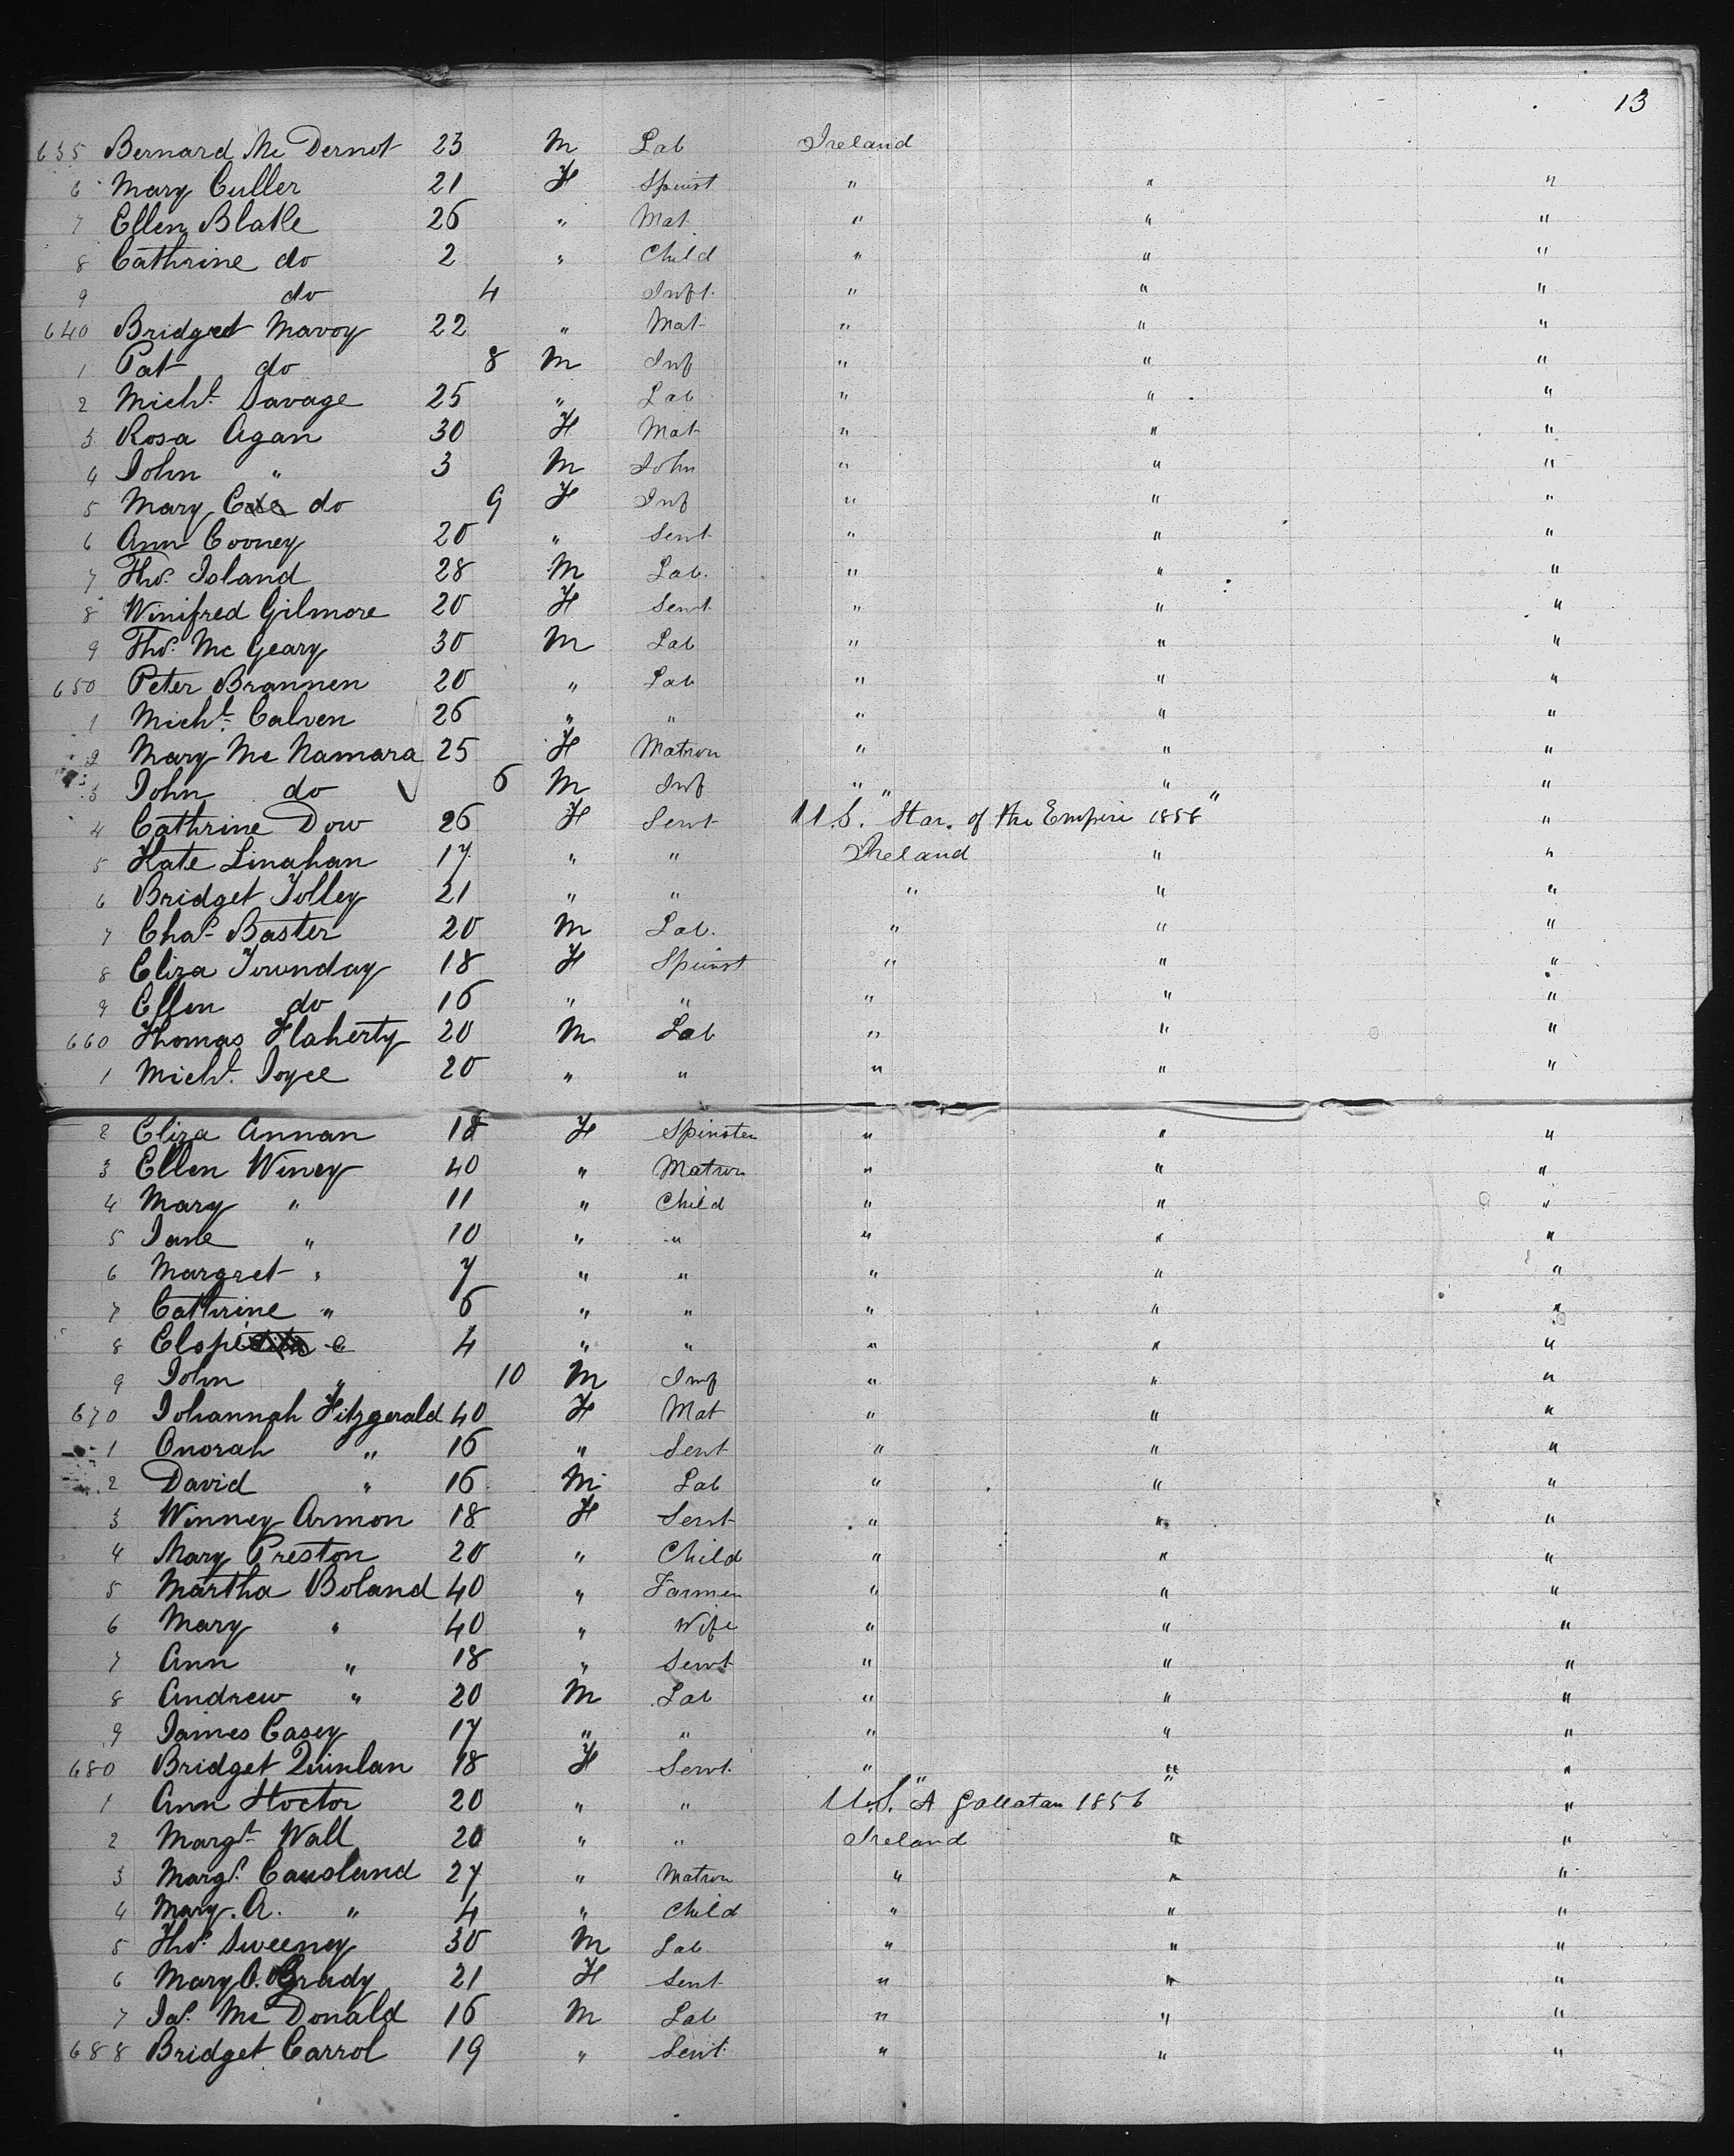 13
635 Bernard Mc Dernot 23 M Lab Ireland
6 Mary Culler 21 F Spinst " " "
7 Ellen Blake 26 " Mat " " "
8 Cathrine do 2 " Child " " "
9 do 4 Inft. " " "
640 Bridget Mavoy 22 " Mat " " "
1 Pat do 8 M Inf " " "
2 Michl. Savage 25 " Lab " " "
3 Rosa Agan 30 F Mat " " "
4 John " 3 M John " " "
5 Mary do 9 F Inf " " "
6 Ann Cooney 20 " Sevt " " "
7 Thos. Island 28 M Lab. " " "
8 Winifred Gilmore 20 F Sevt " " "
9 Thos. Mc Geary 30 M Lab " " "
650 Peter Brannen 20 " Lab " " "
1 Michl. Calven 26 " " " " "
2 Mary Mc Namara 25 F Matron " " "
3 John do 6 M Inf " " "
4 Cathrine Dow 26 F Sevt U.S. "Star of the Empire 1856" "
5 Kate Linahan 17 " " Ireland " "
6 Bridget Tolley 21 " " " " "
7 Chas. Baster 20 M Lab. " " "
8 Eliza Townday 18 F Spinst " " "
9 Ellen do 16 " " " " "
660 Thomas Flaherty 20 M Lab " " "
1 Michl. Joyce 20 " " " " "
2 Eliza Annan 18 F Spinster " " "
3 Ellen Winey 40 " Matron " " "
4 Mary " 11 " Child " " "
5 Jane " 10 " " " " "
6 Margret " 7 " " " " "
7 Cathrine " 6 " " " " "
8 4 " " " " "
9 John " 10 M Inf " " "
670 Johannah Fitzgerald 40 F Mat " " "
1 Onorah " 16 " Sevt " " "
2 David " 16 M Lab " " "
3 Winney Armon 18 F Sevt " " "
4 Mary Preston 20 " Child " " "
5 Martha Boland 40 " Farmer " " "
6 Mary " 40 " Wife " " "
7 Ann " 18 " Sevt " " "
8 Andrew " 20 M Lab " " "
9 James Casey 17 " " " " "
680 Bridget Quinlan 18 F Sevt. " " "
1 Ann Hoctor 20 " " U.S. "A Gallatan 1856" "
2 Margt. Wall 20 " " Ireland " "
3 Margt. Causland 27 " Matron " " "
4 Mary. A. " 4 " Child " " "
5 Thos. Sweeney 30 M Lab " " "
6 Mary O. Grady 21 F Sevt " " "
7 Jas. Mc Donald 16 M Lab " " "
688 Bridget Carrol 19 " Sevt. " " "